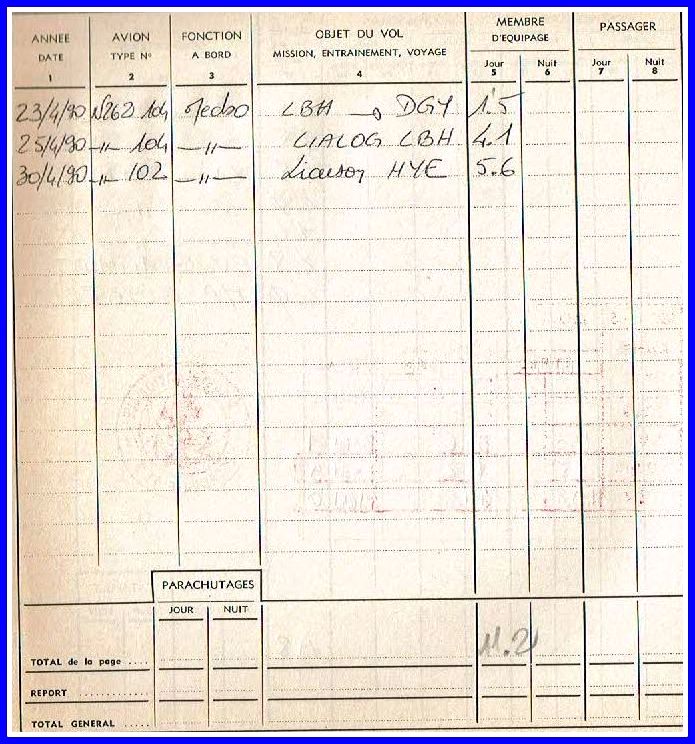 ANNEE AVION FONCTION OBJET DU VOL MEMBRE D'EQUIPAGE PASSAGER
DATE TYPE No A BORD MISSION, ENTRAINEMENT, VOYAGE Jour Nuit Jour Nuit
1 2 3 4 5 6 7 8
23/4/90 N262 104 Mecbo LBH → DGY 1.5
25/4/90 -〃- 104 -〃- LIALOG LBH 4.1
30/4/90 -〃- 102 -〃- Liaison HYE 5.6
PARACHUTAGES
JOUR NUIT
TOTAL de la page .... 11.2
REPORT ............
TOTAL GENERAL .....